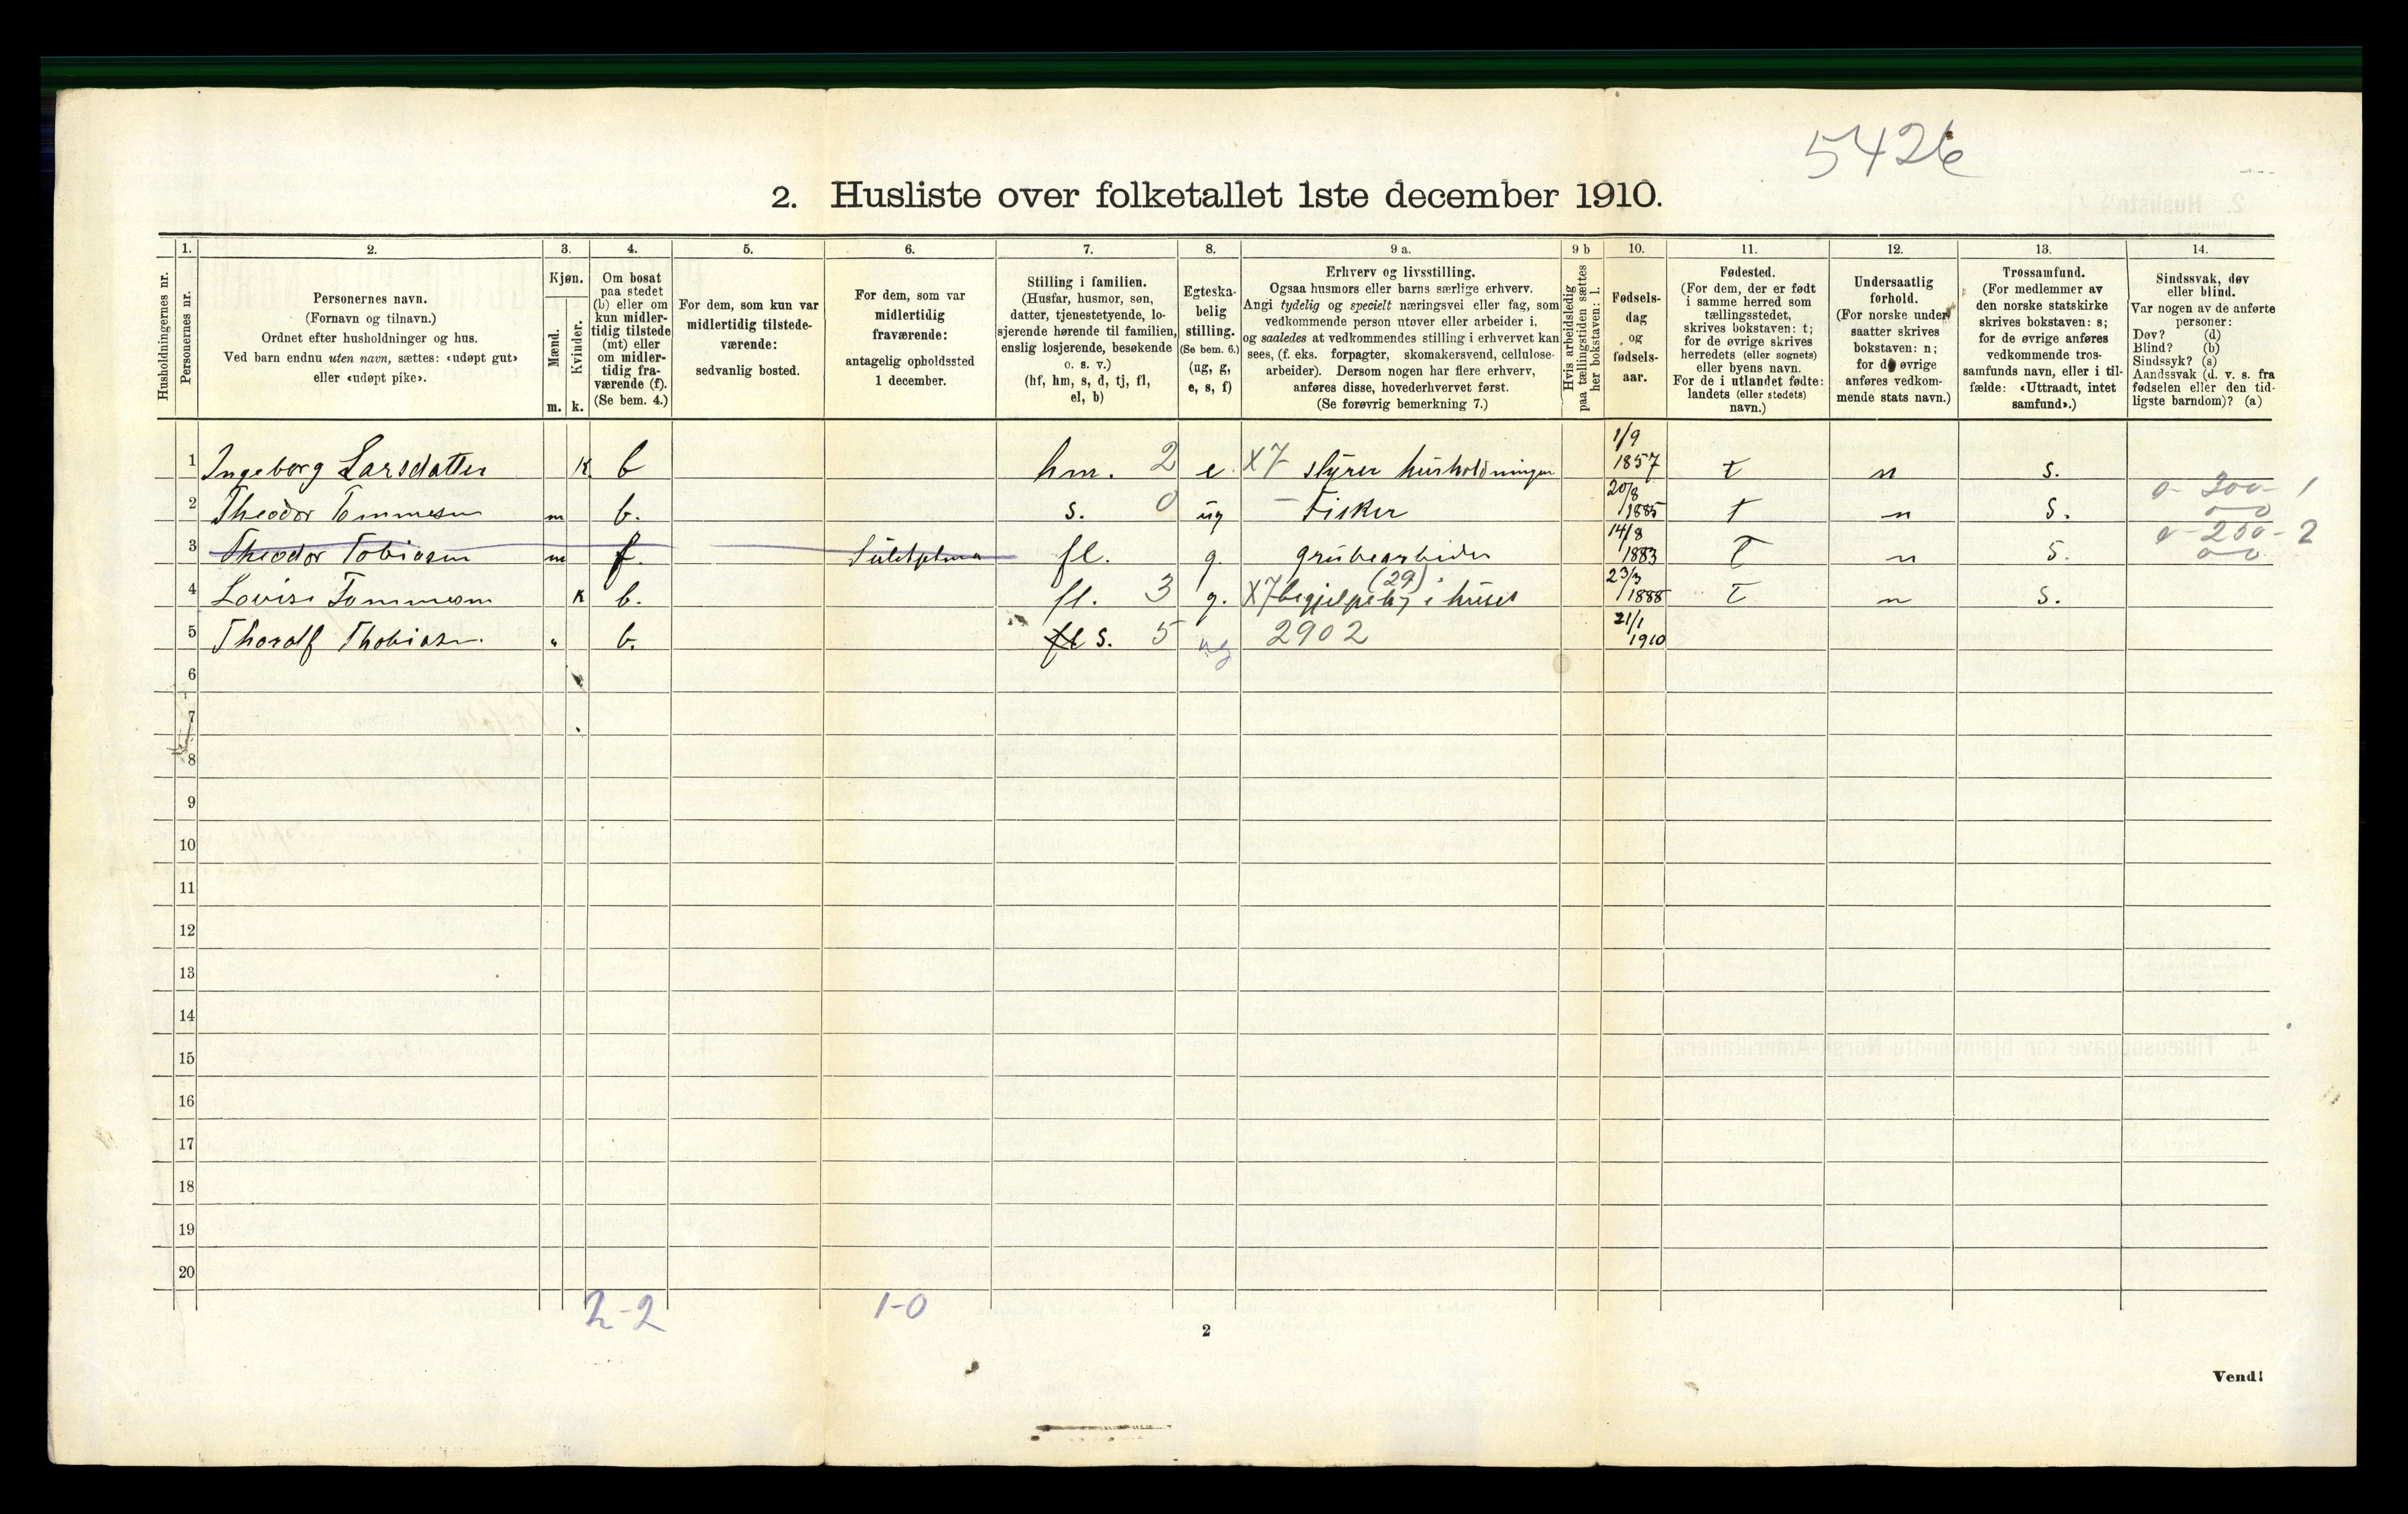 5426
2. Husliste over folketallet 1ste december 1910.
Husholdningernes nr.
1.
Personernes nr.
2.
Personernes navn.
(Fornavn og tilnavn.)
Ordnet efter husholdninger og hus.
Ved barn endnu uten navn, sættes: «udøpt gut»
eller «udøpt pike».
3.
Kjøn.
Mænd.
Kvinder.
m. k.
4.
Om bosat
paa stedet
(b) eller om
kun midler-
tidig tilstede
(mt) eller
om midler-
tidig fra-
værende (f).
(Se bem. 4.)
5.
For dem, som kun var
midlertidig tilstede-
værende:
sedvanlig bosted.
6.
For dem, som var
midlertidig
fraværende:
antagelig opholdssted
1 december.
7.
Stilling i familien.
(Husfar, husmor, søn,
datter, tjenestetyende, lo-
sjerende hørende til familien,
enslig losjerende, besøkende
o. s. v.)
(hf, hm, s, d, tj, fl,
el, b)
8.
Egteska-
belig
stilling.
(Se bem. 6.)
(ug, g,
e, s, f)
9 a.
Erhverv og livsstilling.
Ogsaa husmors eller barns særlige erhverv.
Angi tydelig og specielt næringsvei eller fag, som
vedkommende person utøver eller arbeider i,
og saaledes at vedkommendes stilling i erhvervet kan
sees, (f. eks. forpagter, skomakersvend, cellulose-
arbeider). Dersom nogen har flere erhverv,
anføres disse, hovederhvervet først.
(Se forøvrig bemerkning 7.)
9 b
Hvis arbeidsledig
paa tællingstiden sættes
her bokstaven: l.
10.
Fødsels-
dag
og
fødsels-
aar.
11.
Fødested.
(For dem, der er født
i samme herred som
tællingsstedet,
skrives bokstaven: t;
for de øvrige skrives
herredets (eller sognets)
eller byens navn.
For de i utlandet fødte:
landets (eller stedets)
navn.)
12.
Undersaatlig
forhold.
(For norske under-
saatter skrives
bokstaven: n;
for de øvrige
anføres vedkom-
mende stats navn.)
13.
Trossamfund.
(For medlemmer av
den norske statskirke
skrives bokstaven: s;
for de øvrige anføres
vedkommende tros-
samfunds navn, eller i til-
fælde: «Uttraadt, intet
samfund».)
14.
Sindssvak, døv
eller blind.
Var nogen av de anførte
personer:
Døv? (d)
Blind? (b)
Sindssyk? (s)
Aandssvak (d. v. s. fra
fødselen eller den tid-
ligste barndom)? (a)
1 Ingeborg Larsdatter K b hm. 2 e X7 styrer husholdningen 1/9 1857 t n s.
2 Theodor Tommesen m b. s. 0 ug – Fisker 20/8 1885 t n s. 0 - 300 - 1
3 Theodor Tobiasen m f. fl. g. grubearbeider 14/8 1883 T n s. 0 - 250 - 2
4 Lovise Tommesen K b. fl. 3 g. X7 (29) i huset 23/3 1888 T n s.
5 Thoralf Thobiasen. " b. fl s. 5 ug 2902 21/1 1910
6
7
8
9
10
11
12
13
14
15
16
17
18
19
20
2-2 1-0
2
Vend!